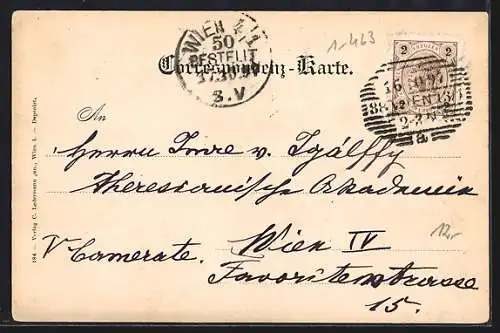 1-463
WIEN 4/1
50
BESTELLT
3.V
2 2
Correspondenz-Karte.
WIEN
2-3 N
a
An
Herrn Imre v. Pálffy
Theresianische Akademie
V Camerate. Wien IV
Favoritenstrasse
15.
12,-
184 – Verlag C. Ledermann jun., Wien I. – Deponirt.